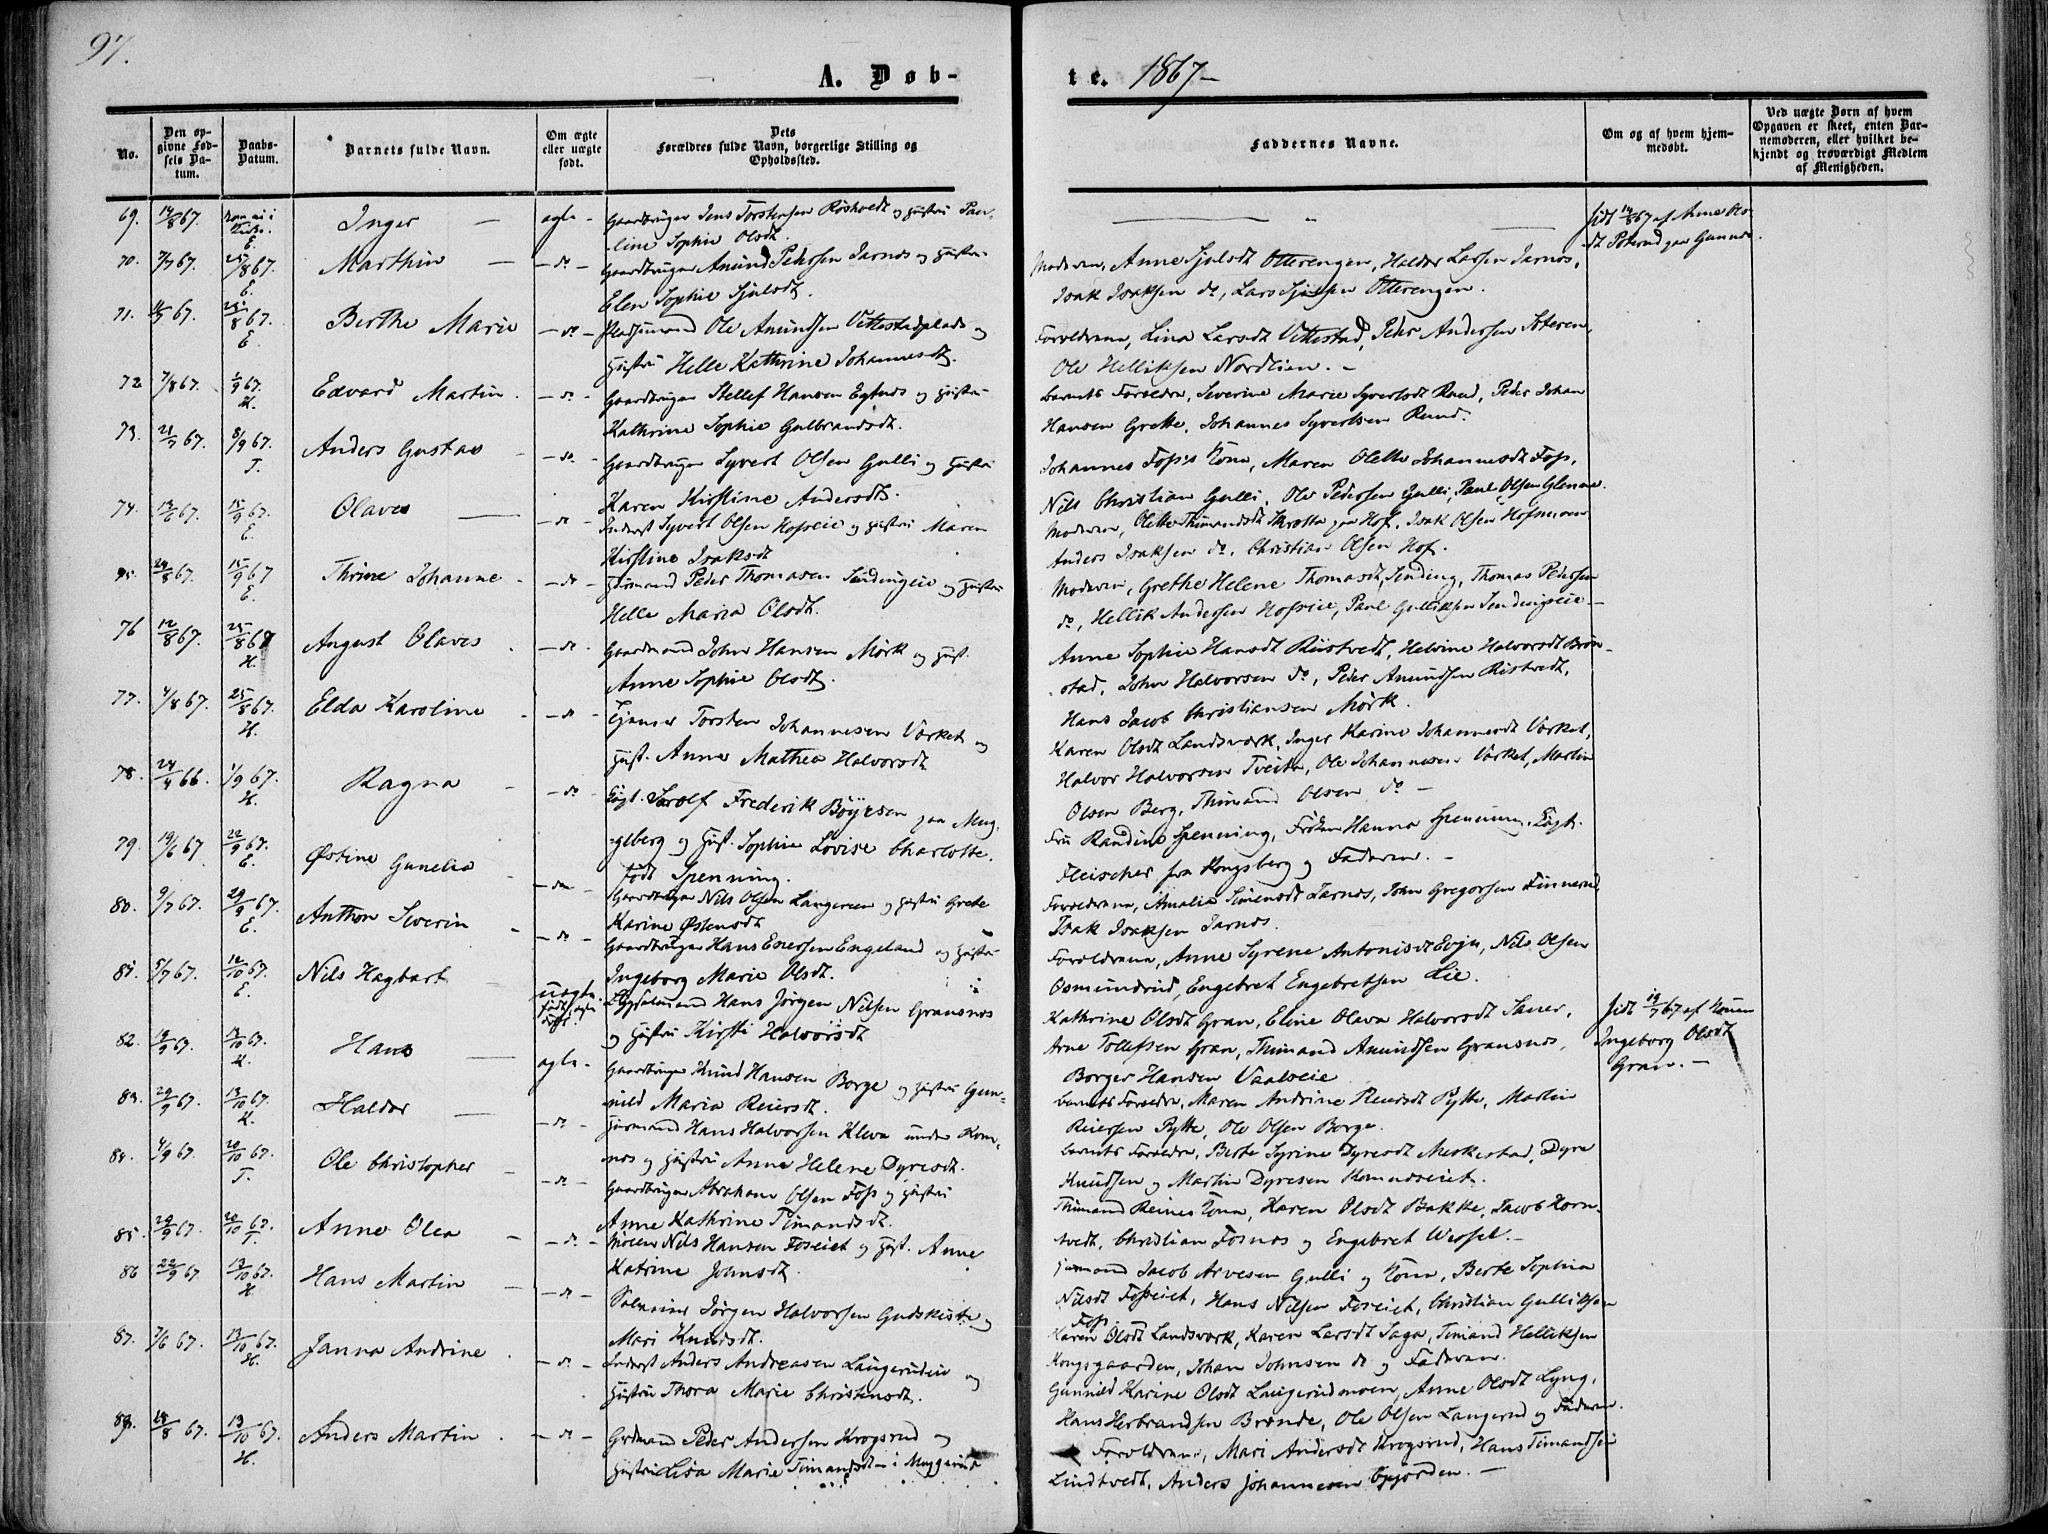 97.
A. Døb-
te. 1867-
No.
Den op-
givne Fød-
sels Da-
tum.
Daabs-
Datum.
Barnets fulde Navn.
Om ægte
eller uægte
født.
Dets
Forældres fulde Navn, borgerlige Stilling og
Opholdssted.
Faddernes Navne.
Om og af hvem hjem-
medøbt.
Ved uægte Børn af hvem
Opgaven er skeet, enten Bar-
nemoderen, eller hvilket be-
kjendt og troværdigt Medlem
af Menigheden.
69. 14/8 67. Inger — ægte - Gaardbruger Jens Torstensen Röshoedt og Hustru Pau-
line Sophie Olsdt.
hjdt 14/8 67 af Anne Ols-
dt Peterud paa
70. 7/7 67. 25/8 67. E. Marthin — - do - Gaardbruger Amund Pedersen Jarnes og Hustru
Elen Sophie Sjulsdt.
Moderen, Anne Sjulsdt Otterengen, Haldor Larsen Jarnes,
Isak Isaksen do, Lars Otterengen.
71. 67. 25/8 67. E. Berthe Marie - do - Pladsmand Ole Amundsen Vittestadplads og
Hustru Helle Kathrine Johannesdt.
Forældrene, Lina Larsdt Vittestad, Peder Andersen
Ole Helliksen Nordlien. -
72 7/8 67. 1/9 67. H. Edvard Martin. - do - Gaardbruger Stellef Hansen og Hustru
Kathrine Sophie Gulbrandsdt.
Barnets Forældre, Severine Marie Syvertsdt Ruud, Peder Johan
Hansen Grette, Johannes Syvertsen Ruud.
73. 21/7 67. 8/9 67. T. Anders Gustav - do - Gaardbruger Syvert Olsen Gulli og Hustru
Karen Kirstine Andersdt.
Johannes Foss's Kone, Maren Olette Johannesdt Foss,
Nils Christian Gulli, Ole Pedersen Gulli, Paul Olsen Glenne.
74. 13/6 67. 15/9 67. E. Olaves — - do - Inderst Syvert Olsen Hofseie og Hustru Maren
Kirstine Isaksdt
Moderen, Olette Thimandsdt paa Hof, Isak Olsen Hofsmoen
Anders Isaksen do, Christian Olsen Hof.
75. 24/8 67. 15/9 67 E. Thrine Johanne - - do - Huusmand Peder Thomasen Sundingeie og Hustru
Helle Maria Olsdt.
Moderen, Grethe Helene Thomasdt, Sending, Thomas Pedersen
do, Hellik Andersen Hofseie, Paul Gulliksen Sendingseie -
76 12/8 67. 25/8 67 H. August Olaves . - do - Gaardmand John Hansen Mörk og Hust.
Anne Sophie Olsdt.
Anne Sophie Hansdt Riistvedt, Helvine Halvorsdt Brön-
stad, John Halvorsen do, Peder Amundsen Ristvedt,
Hans Jacob Christiansen Mörk.
77. 4/8 67. 25/8 67. H. Elda Karoline - - do - Torsten Johannesen Varket og
Hust. Anne Mathea Halvorsdt
Karen Olsdt Landsverk, Inger Karine Johannesdt Varket,
Halvor Halvorsen Tveiten, Ole Johannesen Varket, Martin
Olsen Berg, Thimand Olsen do -
78. 24/9 66. 1/9 67. H. Ragna - - do - Frederik Böyesen paa Mug-
gberg og Hust. Sophie Lovise Charlotte,
født Spenning.
Fru Randine Spenning, Fröken Hanna Spenning,
Fleischer fra Kongsberg og Faderen. -
79. 19/6 67 22/9 67. E. Østine Gunelia - - do - Gaardbruger Nils Olsen Langereen og Hustru Grete
Karine Østensdt
Forældrene, Amalia Simensdt Jarnes, John Gregorsen Finnerud
Isak Isaksen Jarnes.
80. 9/7 67. 29/9 67. E. Anthon Severin - - do - Gaardbruger Hans Enersen Engeland og Hustru
Ingeborg Marie Olsdt.
Forældrene, Anne Syrene Antonisdt Evju, Nils Olsen
Osmundrud, Engebret Engebretsen Lie.
81. 5/7 67. 12/10 67. E. Nils Hagbart - uægte. Hans Jørgen Nilsen Gransnes
og Hustru Kirsti Halvorsdt
Kathrine Olsdt Gran, Eline Olava Halvorsdt Saner,
Arne Tollefsen Gran, Thimand Amundsen Gransnes,
Borger Hansen Vaalseie
hjdt 19/7 67 af Konen
Ingeborg Olsdt
Gran. -
82. 12/9 67. 13/10 67. H. Hans — ægte - Gaardbruger Knud Hansen Borge og Hustru Gun-
nild Maria Reiersdt.
Barnets Forældre, Maren Andrine Reiersdt Pytte, Martin
Reiersen Pytte, Ole Olsen Borge.
83. 20/9 67. 13/10 67. H. Haldor — - do - Huusmand Hans Halvorsen Kleva under Kom-
nes og Hustru Anne Helene Dyresdt.
Barnets Forældre, Berte Syrine Dyresdt Meskestad, Dyre
Knudsen og Martin Dyresen Komneseiet.
84. 4/9 67. 20/10 67. T. Ole Christopher - - do - Gaardbruger Abraham Olsen Foss og Hustru
Anne Kathrine Timandsdt.
Thimand Reines Kone, Karen Olsdt Bakke, Jacob Horn-
tvedt, Christian Fosnes og Engebret Wessel. -
85. 20/9 67. 20/10 67. T. Anne Olea - - do - Nils Hansen Foseiet og Hust. Anne
Katrine Johnsdt.
Huusmand Jacob Arvesen Gulli og Kone, Berte Sophia
Nilsdt Fosseiet, Hans Nilsen Foseiet, Christian Gulliksen
Foss.
86 22/9 67. 13/10 67. H Hans Martin - - do - Jörgen Halvorsen Gudskiste og
Mari Knudsdt.
Karen Olsdt Landsverk, Karen Larsdt Saga, Timand Helliksen
Kongsgaarden, Johan Johnsen do og Faderen.
87. 7/6 67. 13/10 67. H. Janna Andrine . - do - Inderst Anders Andreasen Langerudeie og
Hustru Thora Marie Christensdt.
Gunnild Karine Olsdt Langerudmoen, Anne Olsdt Lyng,
Hans Herbrandsen Brende, Ole Olsen Langerud og Faderen.
88. 28/8 67. 13/10 67. H. Anders Martin . - do - Grdmand Peder Andersen Krogsrud og
Hustru Lisa Marie Timandsdt i Muggerud
Forældrene, Mari Andersdt Krogsrud, Hans Timandsen
Lindtvedt, Anders Johannesen Gjorden. -